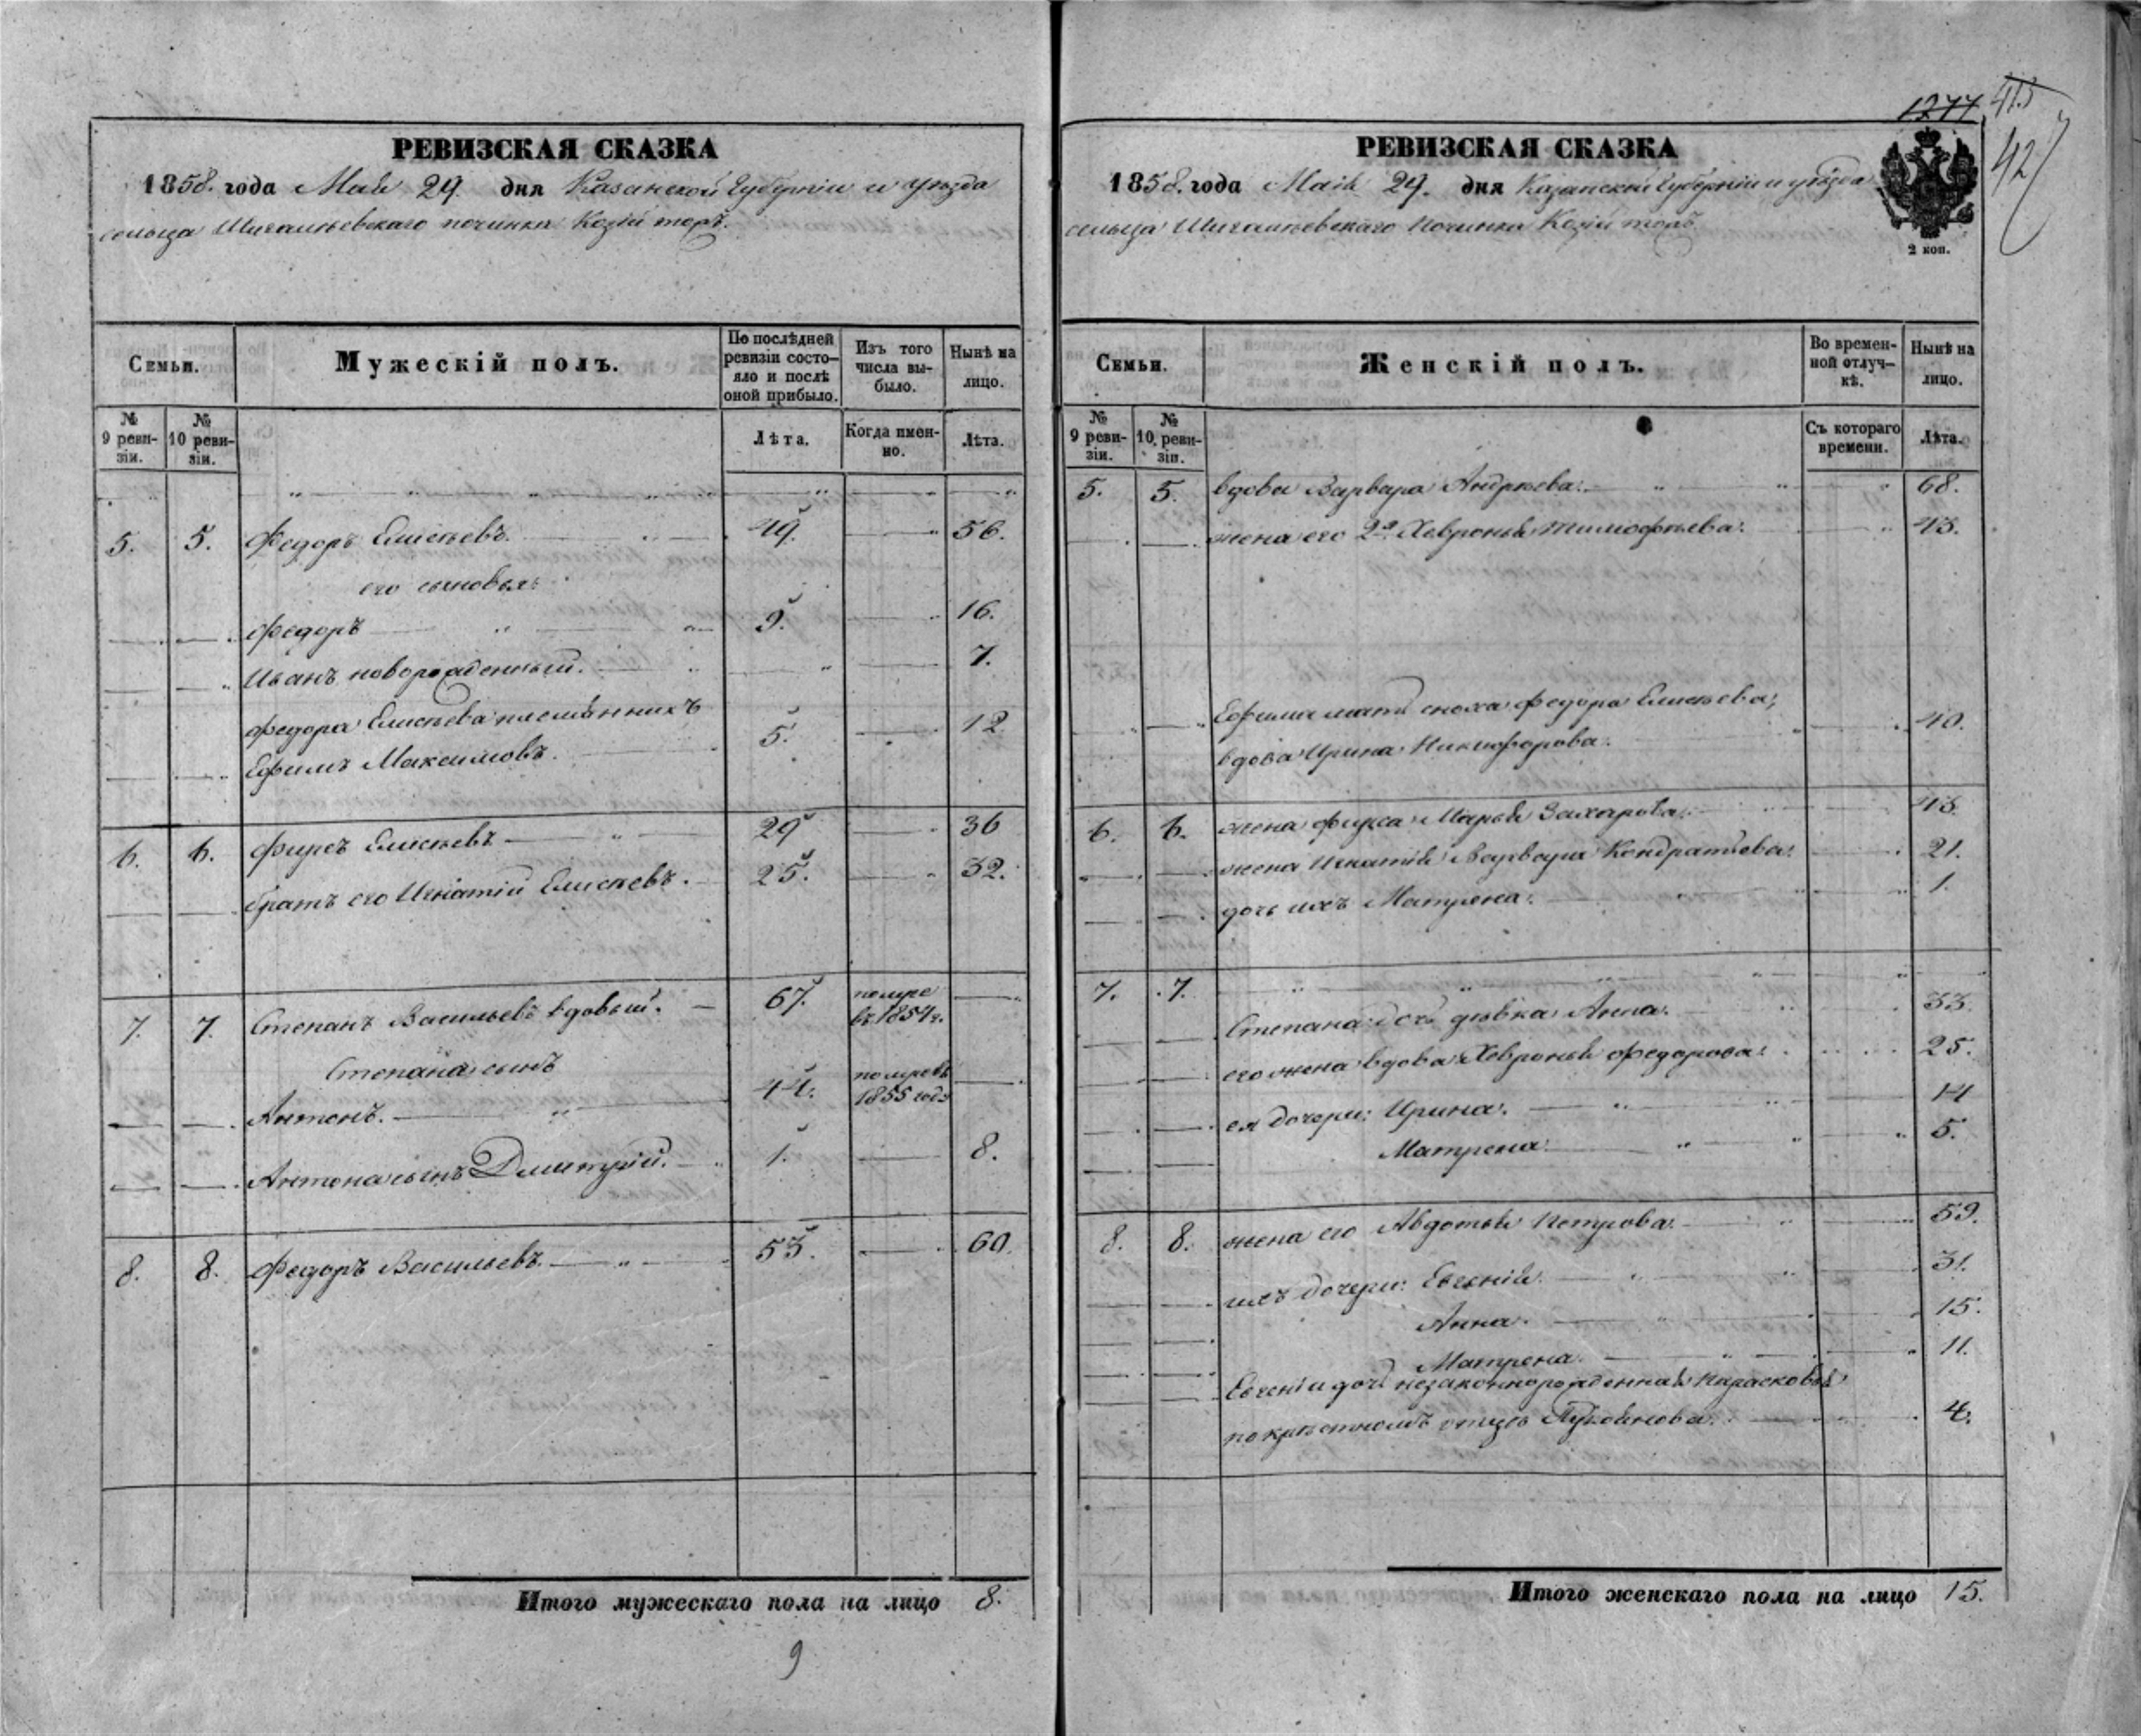 РЕВИЗСКАЯ СКАЗКА
1858. года Мая 29. дня Казанской Губерніи и уѣзда
сельца Шигалеевскаго починка Козій
Семьи.
Мужескій полъ.
По послѣдней ревизіи состо-
яло и послѣ оной прибыло.
Изъ того числа вы-
было.
Нынѣ на лицо.
№ 9 реви-
зіи.
№ 10 реви-
зіи.
Лѣта.
Когда имен-
но.
Лѣта.
5. 5. Федоръ Елисѣевъ. 49. 56.
его сыновья:
Федоръ 9. 16.
Иванъ новорожденный. 7.
Федора Елисѣева племянникъ
Ефимъ Максимовъ. 5. 12
6. 6. Фирсъ Елисѣевъ 29 36
братъ его Игнатій Елисѣевъ. 25. 32.
7. 7. Степанъ Васильевъ вдовый. 67. помре
въ 1854 г.
Степана сынъ
Антонъ. 44. помре въ
1855 году
Антона сынъ Дмитрій. 1. 8.
8. 8. Федоръ Васильевъ. 53. 60.
Итого мужескаго пола на лицо 8.
9
1277 415
42
РЕВИЗСКАЯ СКАЗКА
1858. года Мая 29. дня Казанской Губерніи и уѣзда
сельца Шигалеевскаго починка Козій
2 коп.
Семьи.
Женскій полъ.
Во времен-
ной отлуч-
кѣ.
Нынѣ на лицо.
№ 9 реви-
зіи.
№ 10. реви-
зіи.
Съ котораго времени.
Лѣта.
5. 5. вдова Варвара Андрѣева. 68.
жена его 2я Хевронья Тимофѣева. 43.
Ефима мать сноха Федора Елисѣева,
вдова Ирина Никифорова. 40.
6. 6. жена Фирса Марья Захарова. 43.
жена Игнатія Варвара Кондратьева. 21.
дочь ихъ Матрена. 1.
7. 7.
Степана дочь дѣвка Анна. 33.
его жена вдова Хевронья Федорова. 25.
ея дочери: Ирина. 14
Матрена 5.
8. 8. жена его Авдотья Петрова. 59.
ихъ дочери: Евгенія. 31.
Анна. 15.
Матрена. 11.
Евгеніи дочь незаконнорожденная Парасковья
по крестномъ отцѣ 4.
Итого женскаго пола на лицо 15.